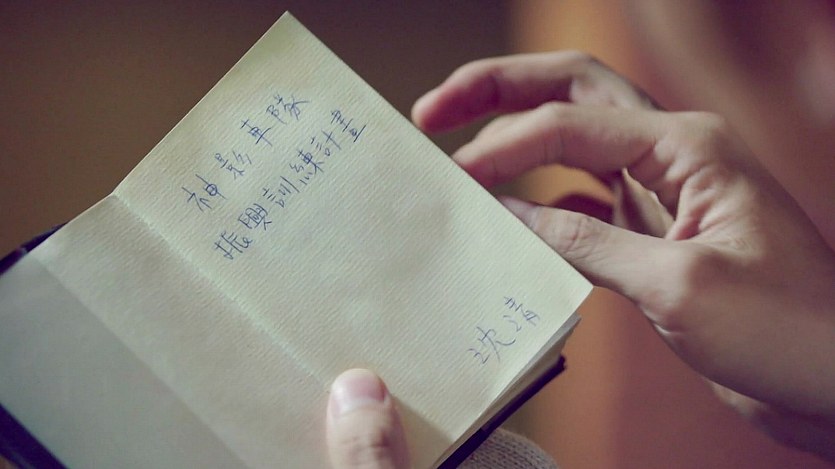 神影車隊
振興訓練計畫
沈清